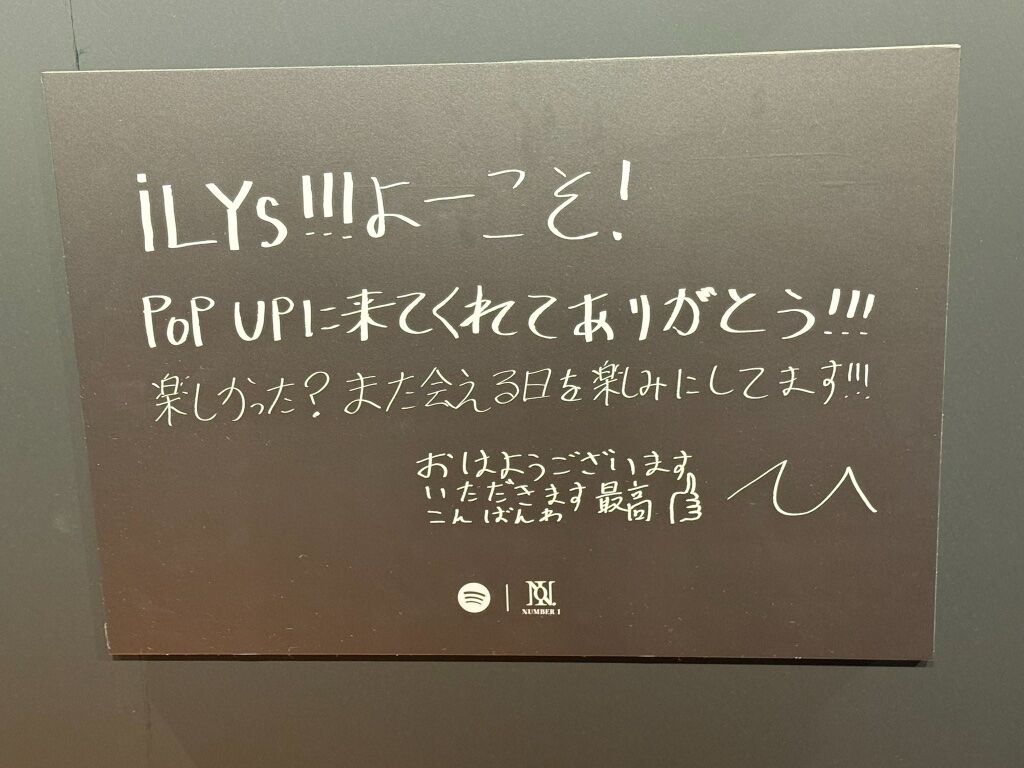 iLYs!!!よーこそ!
POP UPに来てくれてありがとう!!!
楽しかった?また会える日を楽しみにしてます!!!
おはようございます
いただきます 最高
こんばんわ
ひ
NUMBER I